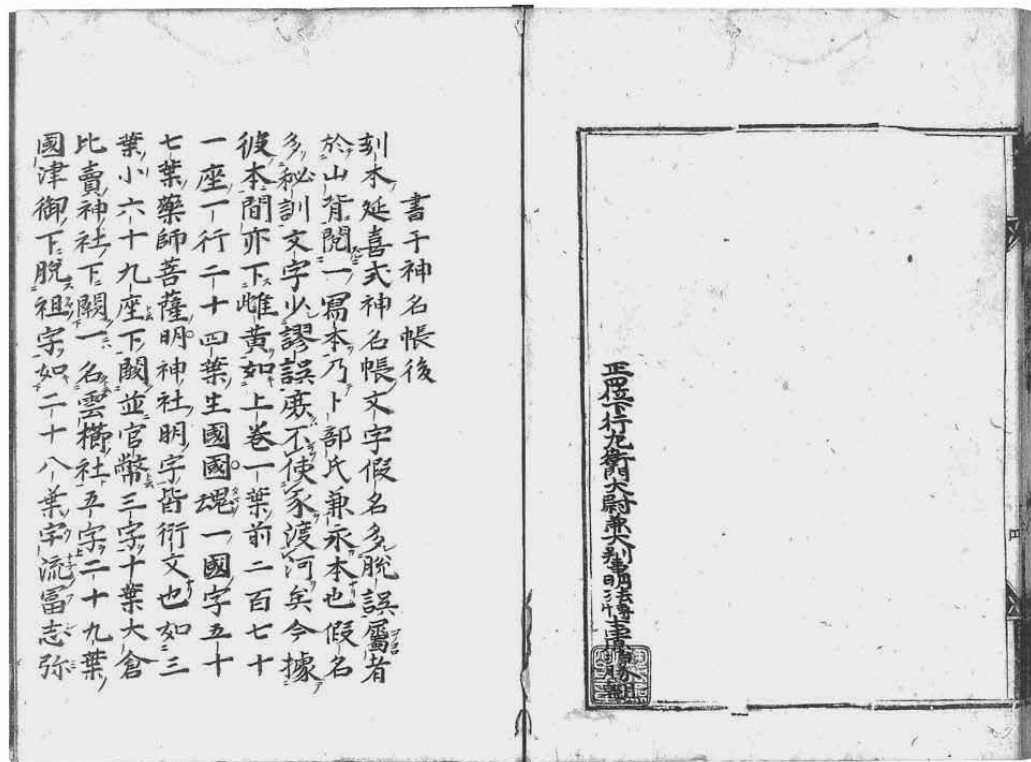 正四位下行左衛門大尉兼大判事明法博士
書于神名帳後
刻本延喜式神名帳文字假名多脱誤屬者
於山背閲一寫本乃卜部氏兼永本也假名
多秘訓文字少謬誤庶不使豕渡河矣今據
彼本間亦下雌黄如上巻一葉前二百七十
一座一行二十四葉生國國魂一國字五十
七葉藥師菩薩明神社明字皆衍文也如三
葉小六十九座下闕並官幣三字十葉大倉
比賣神社下闕一名雲櫛社五字二十九葉
國津御下脱祖字如二十八葉宇流冨志弥